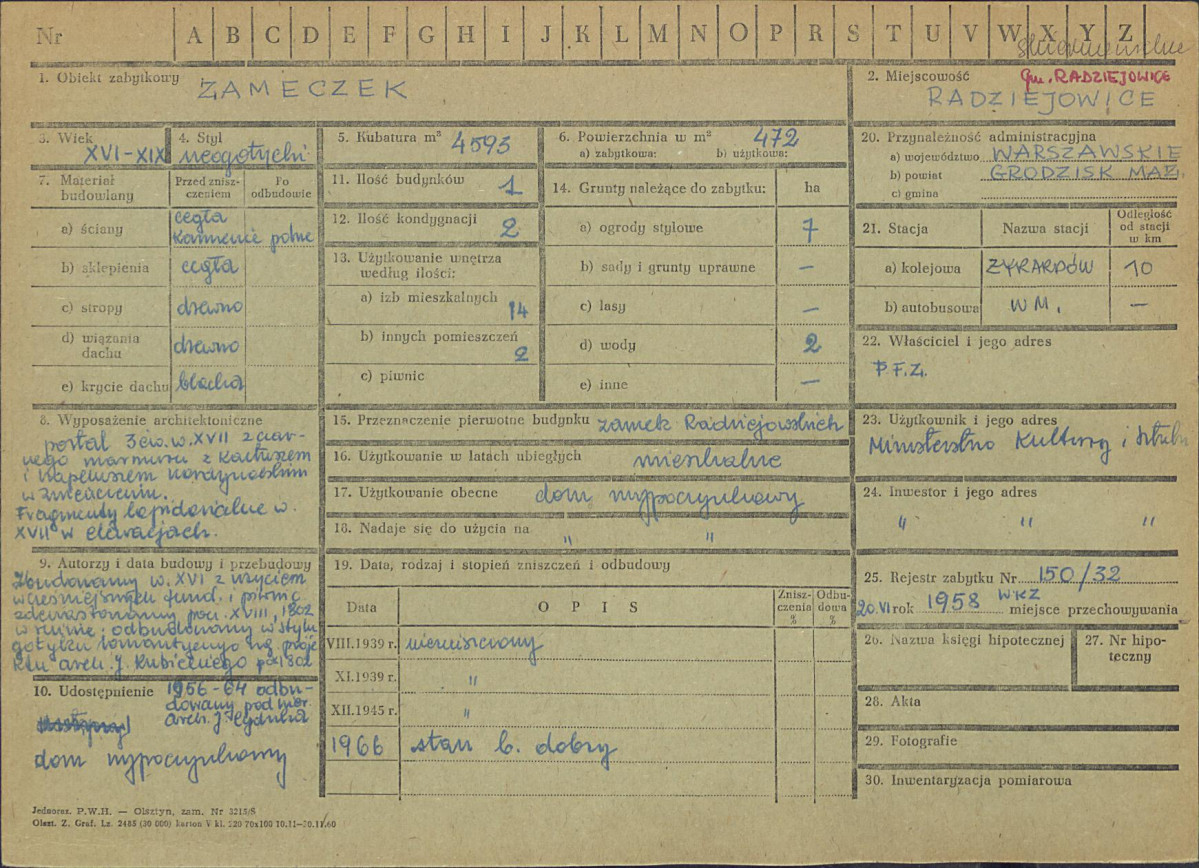 Nr A B C D E F G H I J K L M N O P R S T U V W X Y Z
1. Obiekt zabytkowy ZAMECZEK
2. Miejscowość gm. RADZIEJOWICE
RADZIEJOWICE
3. Wiek XVI-XIX
4. Styl neogotycki
5. Kubatura m³ 4593
6. Powierzchnia w m² 472
a) zabytkowa: b) użytkowa:
7. Materiał budowlany
Przed zniszczeniem
Po odbudowie
a) ściany cegła
kamienie polne
b) sklepienia cegła
c) stropy drewno
d) wiązania dachu drewno
e) krycie dachu blacha
8. Wyposażenie architektoniczne
portal 3 ćw. w. XVII z czar-
nego marmuru z kartuszem
i kapeluszem kardynalskim
w zwieńczeniu.
Fragmenty lapidarialne w.
XVII w elewacjach.
9. Autorzy i data budowy i przebudowy
Zbudowany w. XVI z użyciem
wcześniejszych fund. i piwnic
zdewastowany poł. XVIII, 1802
w ruinie, odbudowany w stylu
gotyku romantycznego wg proje
ktu arch. J. Kubickiego
10. Udostępnienie 1956-64 odbu-
dowany pod kier.
arch. J.
dom wypoczynkowy
11. Ilość budynków 1
12. Ilość kondygnacji 2
13. Użytkowanie wnętrza
według ilości:
a) izb mieszkalnych 14
b) innych pomieszczeń 2
c) piwnic
14. Grunty należące do zabytku: ha
a) ogrody stylowe 7
b) sady i grunty uprawne —
c) lasy —
d) wody 2
e) inne —
15. Przeznaczenie pierwotne budynku zamek Radziejowskich
16. Użytkowanie w latach ubiegłych mieszkalne
17. Użytkowanie obecne dom wypoczynkowy
18. Nadaje się do użycia na " "
19. Data, rodzaj i stopień zniszczeń i odbudowy
Data OPIS Zniszczenia % Odbudowa %
VIII.1939 r. niezniszczony
XI.1939 r. "
XII.1945 r. "
1966 stan b. dobry
20. Przynależność administracyjna
a) województwo WARSZAWSKIE
b) powiat GRODZISK MAZ.
c) gmina
21. Stacja Nazwa stacji Odległość od stacji w km
a) kolejowa ŻYRARDÓW 10
b) autobusowa W M. —
22. Właściciel i jego adres
P.F.Z.
23. Użytkownik i jego adres
Ministerstwo Kultury i Sztuki
24. Inwestor i jego adres
" " "
25. Rejestr zabytku Nr 150/32
20.VI rok 1958 WKZ miejsce przechowywania
26. Nazwa księgi hipotecznej
27. Nr hipoteczny
28. Akta
29. Fotografie
30. Inwentaryzacja pomiarowa
Jednoraz. P.W.H. — Olsztyn, zam. Nr 3215/S
Olszt. Z. Graf. Lz. 2485 (30 000) karton V kl. 220 70x100 10.11-20.11.60